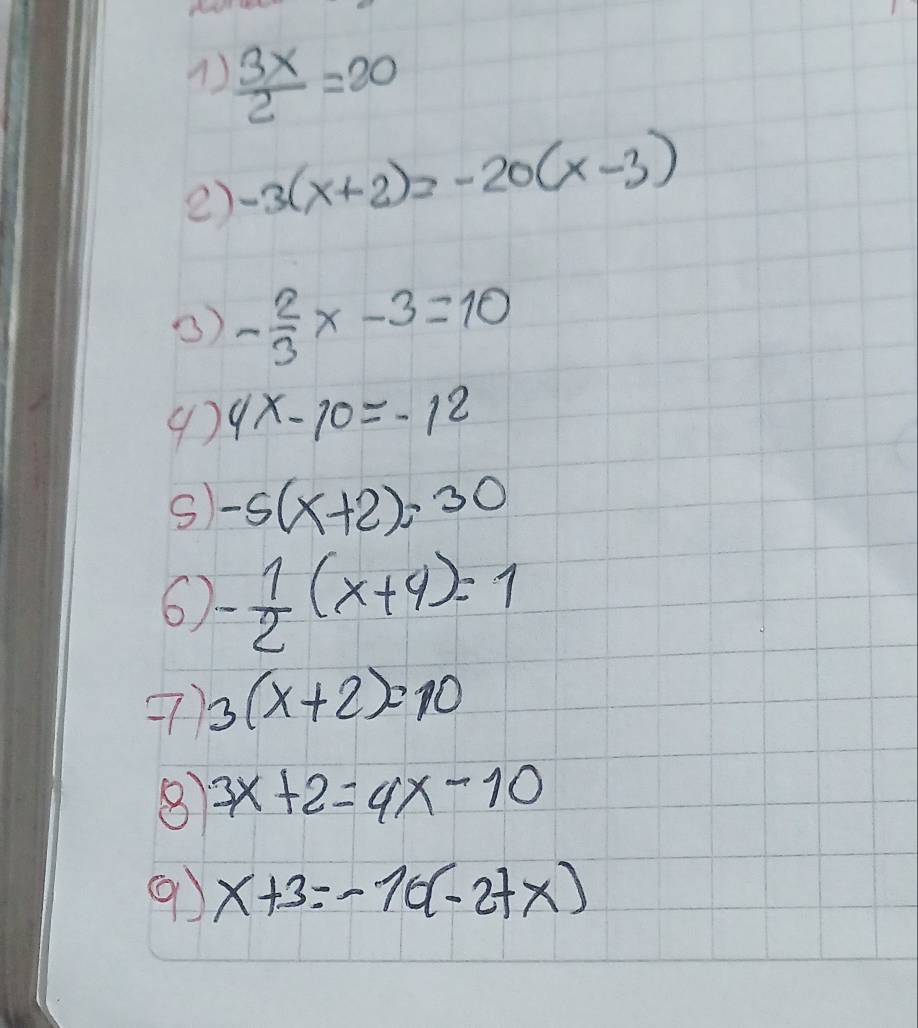 1) 3x/2 = 20
2) -3(x+2) = -20(x-3)
3) -2/3 x - 3 = 10
4) 4x - 10 = -12
5) -5(x+2) = 30
6) -1/2 (x+4) = 1
7) 3(x+2) = 10
8) 3x + 2 = 4x - 10
9) x + 3 = -10(-2+x)